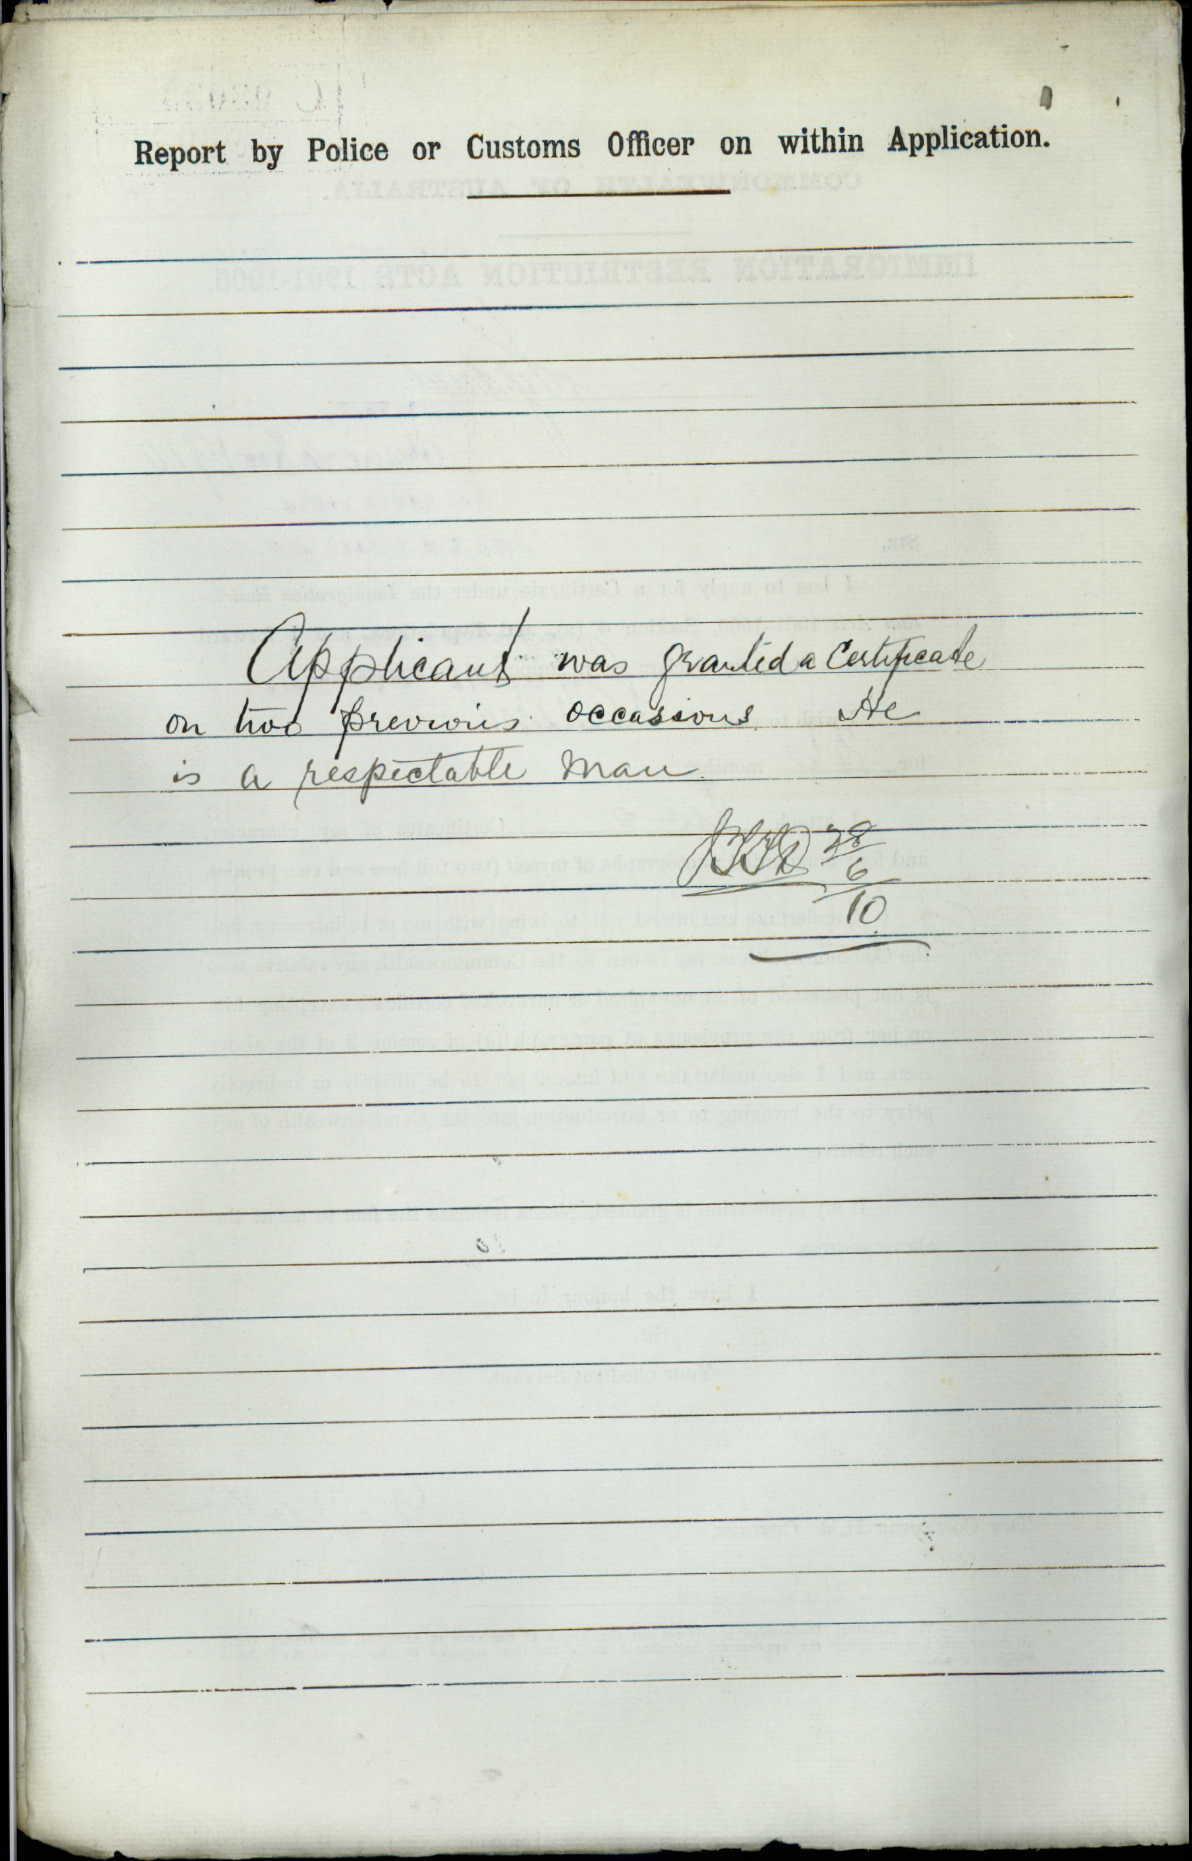 Report by Police or Customs Officer on within Application.
Applicant was granted a Certificate
on two previous occasions He
is a respectable man.
28
6
10